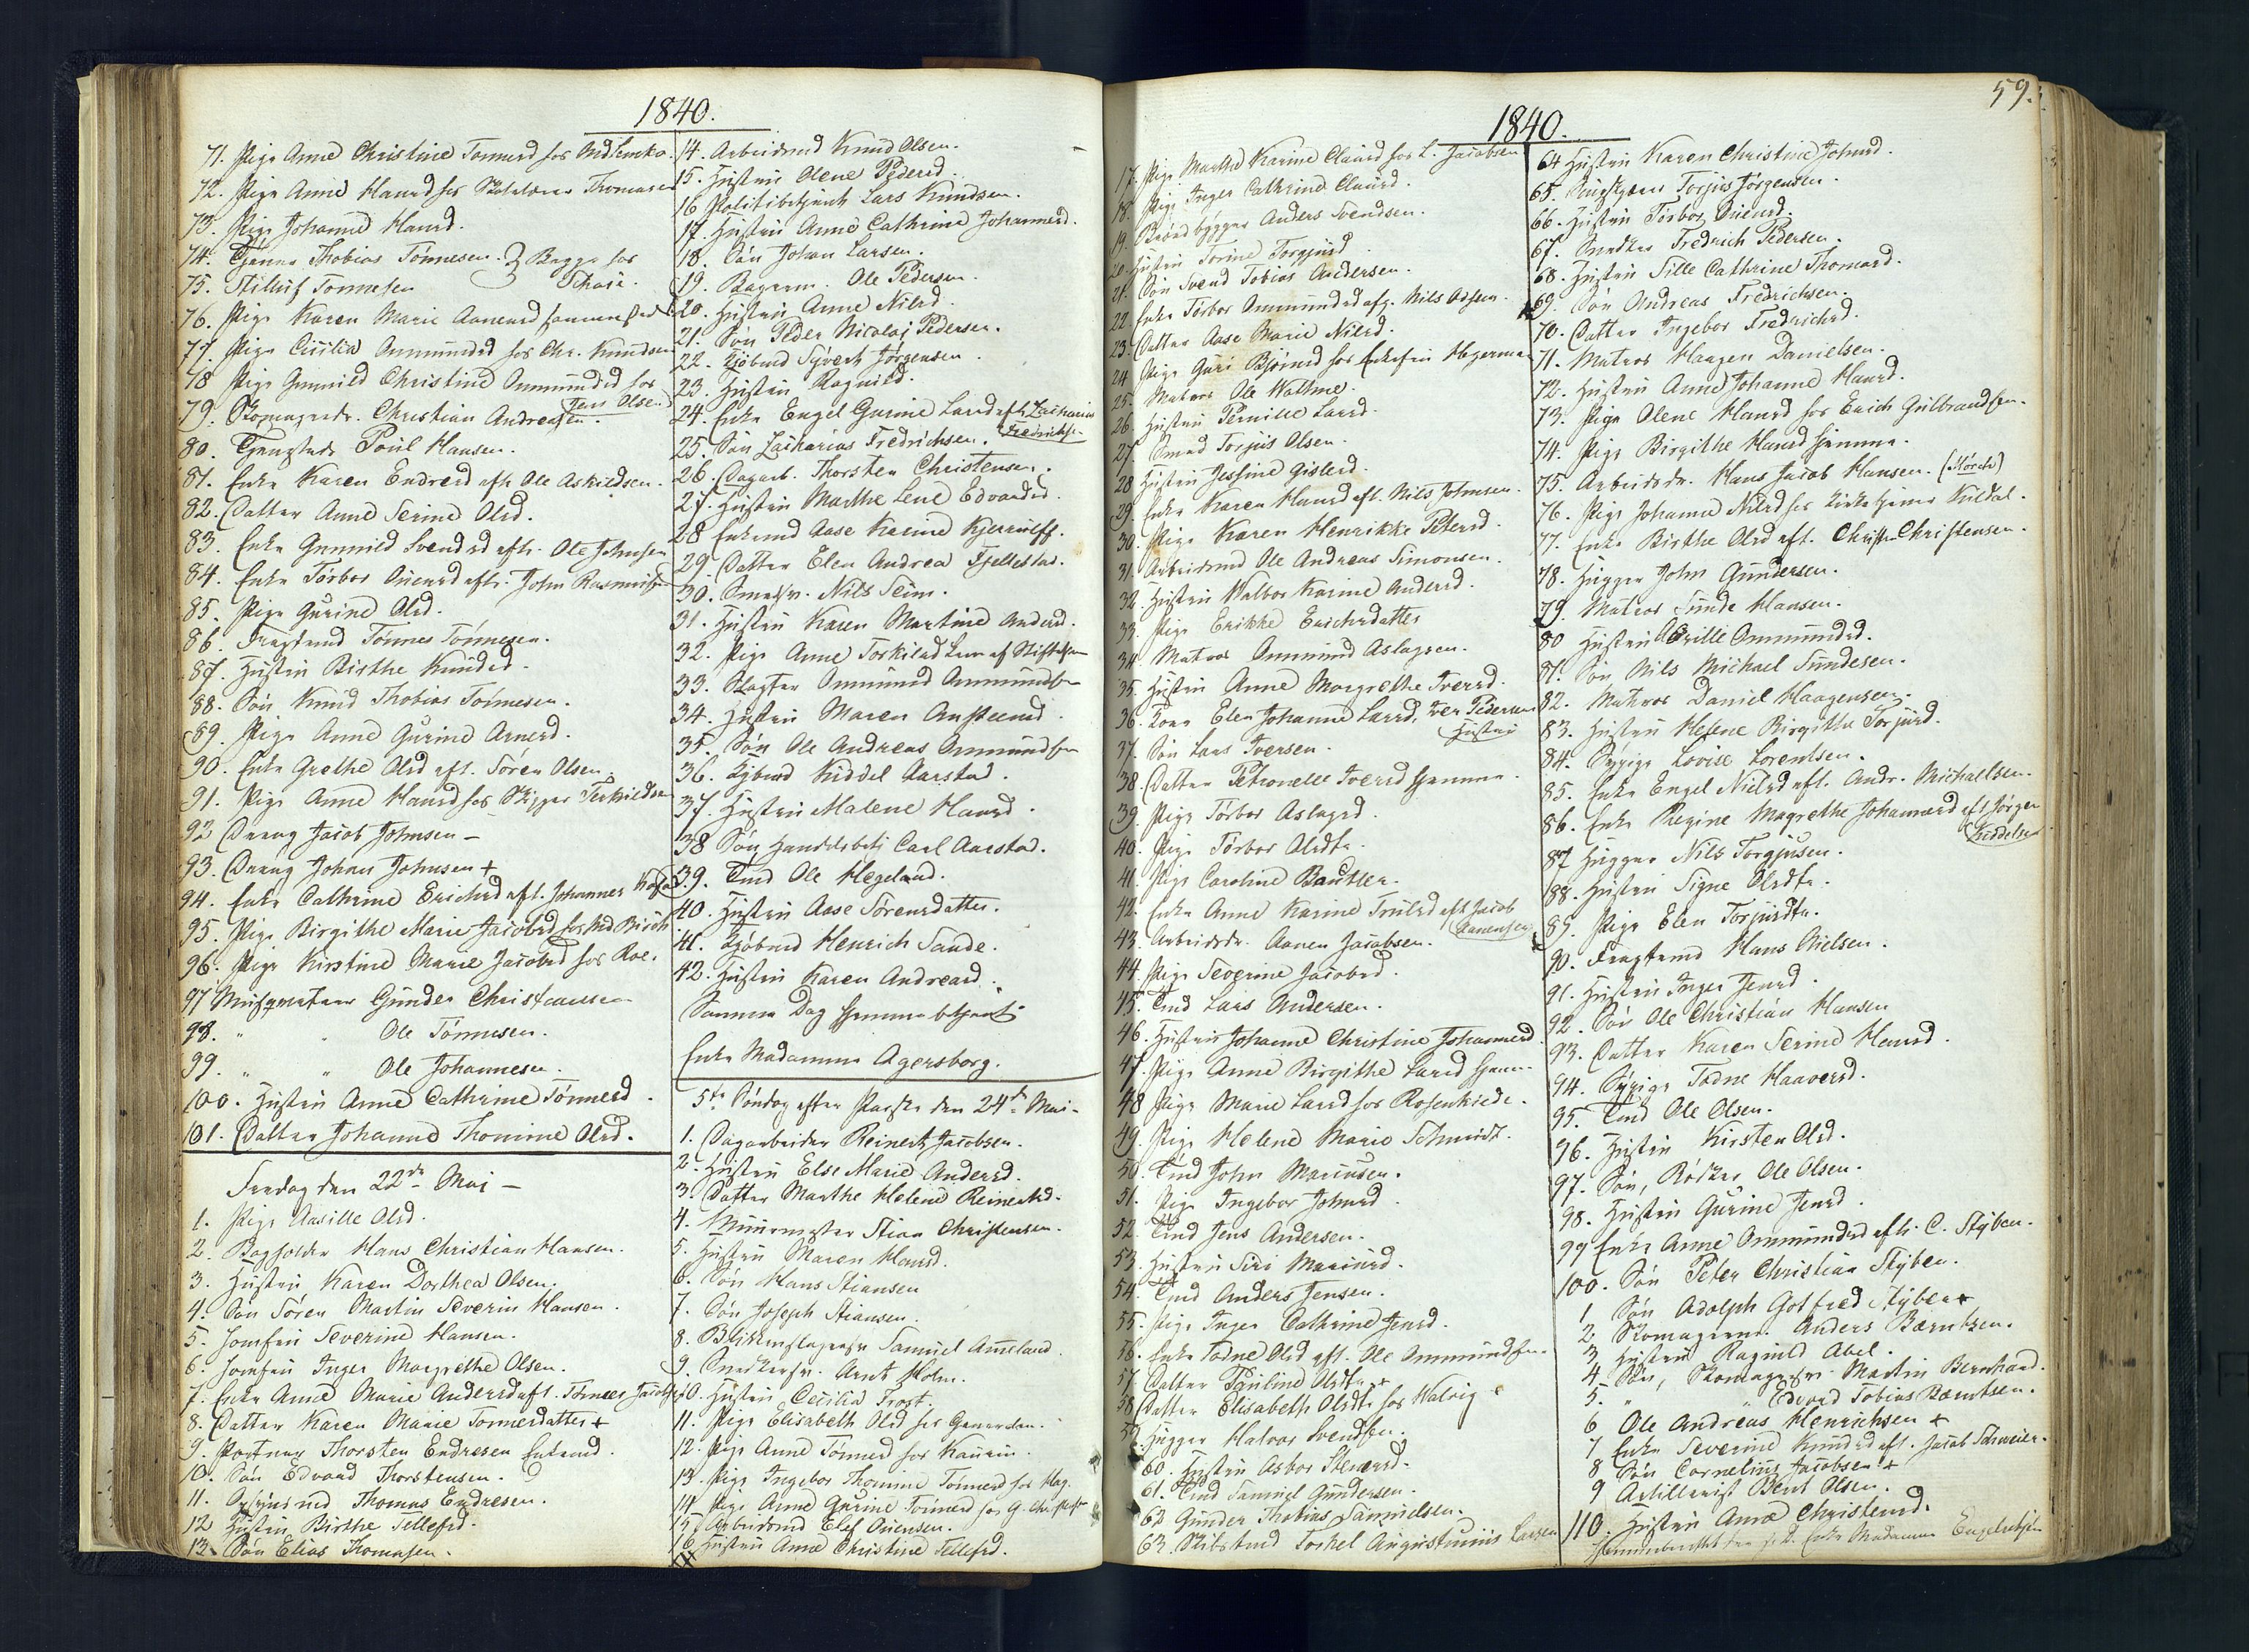 1840.
71. Pige Anne Christine Tønnesd hos Md Lemko.
72. Pige Anne Hansd hos Skolelærer Thomasen
73. Pige Johanne Hansd.
74. Tjener Thobias Tønnesen. } Begge hos
75. Stilluf Tønnesen Schøie.
76. Pige Karen Marie Aanensd sammested
77. Pige Cicilia Ommundsd hos Chr. Knudsen
78 Pige Gunnild Christine Ommundsd hos
Jens Olsen
79. Skomagerdr. Christian Andreasen.
80. Poul Hansen.
81. Enke Karen Endresd eft. Ole Askildsen.
82. Datter Anne Serine Olsd.
83. Enke Gunnild Svendsd eft. Ole Johnsen
84. Enke Tørbor Ouensd eft. John Rasmusen
85. Pige Gurine Olsd.
86. Fragtmd Tønnes Tønnesen.
87. Hustru Birthe Knudsd.
88. Søn Knud Thobias Tønnesen.
89. Pige Anne Gurine Arnesd.
90. Enke Grethe Olsd eft. Søren Olsen.
91. Pige Anne Hansd hos Skipper Terkildsen
92 Dreng Jacob Johnsen –
93. Dreng Johan Johnsen +
94. Enke Cathrine Erichsd eft. Johannes
95. Pige Birgithe Marie Jacobsd hos Md Birch
96. Pige Kirstine Marie Jacobsd hos Roe.
97 Gunder Christensen
98. " " Ole Tønnesen.
99. " " Ole Johannesen.
100. Hustru Anne Cathrine Tønnesd.
101. Datter Johanne Thomine Olsd.
Fredag den 22de Mai –
1. Pige Aasille Olsd.
2. Bogholder Hans Christian Hansen.
3. Hustru Karen Dorthea Olsen.
4. Søn Søren Martin Severin Hansen.
5. Jomfru Severine Hansen.
6. Jomfru Inger Margrethe Olsen.
7. Enke Anne Marie Andersd eft. Tønnes Jacobs
8. Datter Karen Marie Tønnesdatter +
9. Thorsten Endresen Enkemd.
10. Søn Edvard Thorstensen.
11. Thomas Endresen.
12 Hustru Birthe Tellefsd.
13. Søn Elias Thomasen.
14. Arbeidsmd Knud Olsen.
15. Hustru Olene Pedersd.
16 Politibetjent Lars Knudsen.
17. Hustru Anne Cathrine Johannesd.
18. Søn Johan Larsen.
19. Bagerm. Ole Pedersen.
20. Hustru Anne Nilsd.
21. Søn Peder Nicolai Pedersen.
22. Kjøbmd Sÿvert Jørgensen.
23. Hustru Ragnild.
24. Enke Engel Gurine Larsd eft. Zacharias
Fredrichsen
25. Søn Zacharias Fredrichsen.
26. Dagarb. Thorsten Christensen.
27. Hustru Marthe Lene Edvardsd.
28 Enkemd Aase Karine Kjerulff.
29 Datter Elen Andrea Fjeldestad.
30. Smedsv. Nils Seim.
31. Hustru Karen Martine Andersd.
32. Pige Anne Torkilsd Lem af Stiftelsen
33. Slagter Ommund Ommundsen
34. Hustru Maren Austensd.
35. Søn Ole Andreas Ommundsen
36. Kjøbmd Kiddel Aarstad.
37. Hustru Malene Hansd.
38 Søn, Handelsbetj Carl Aarstad.
39. Tmd Ole Hegeland.
40. Hustru Aase Sørensdatter.
41. Kjøbmd Henrich Sande.
42. Hustru Karen Andreasd.
Samme Dag hjemmebetjent
Enke Madamme Agersborg.
5te Søndag efter Paaske den 24de Mai –
1. Dagarbeider Reinert Jacobsen.
2. Hustru Else Marie Andersd.
3. Datter Marthe Helene Reinertsd.
4. Muurmester Stian Christensen.
5. Hustru Maren Hansd.
6. Søn Hans Stiansen
7. Søn Joseph Stiansen.
8. Blikkenslagersv Samuel Ameland.
9. Snedkersv. Arnt Holm.
10. Hustru Cecilia Frost.
11. Pige Elisabeth Olsd hos
12. Pige Anne Tønnesd hos
13. Pige Ingebor Thomine Tønnesd hos Hag.
14 Pige Anne Gurine Tønnesd hos G. Christensen
15 Arbeidsmd Elef Ouensen.
16 Hustru Anne Christine Tellefsd.
59.
1840.
17. Pige Marthe Karine Clausd hos L. Jacobsen
18. Pige Inger Cathrine Clausd.
19. Anders Svendsen.
20. Hustru Torine Torgjusd.
21. Søn Svend Tobias Andersen.
22. Enke Tørbor Ommundsd eft. Nils Adsen.
23. Datter Aase Marie Nilsd.
24 Pige Guri Bjørnsd hos Enkefru Hegerman
25. Matros Ole Wathne.
26. Hustru Pernille Larsd.
27. Smed Torjus Olsen.
28 Hustru Jesfine Gislesd.
29. Enke Karen Hansd eft. Nils Johnsen.
30. Pige Karen Henrikke Petersd.
31. Arbeidsmd Ole Andreas Simonsen.
32. Hustru Walbor Karine Andersd.
33. Pige Erikke Erichsdatter
34. Matros Ommund Aslagsen.
35. Hustru Anne Margrethe Iversd.
36. Kone Elen Johanne Larsd, Iver Pedersens
Hustru
37. Søn Lars Iversen.
38. Datter Petronelle Iversd hjemme.
39. Pige Tørbor Aslagsd.
40. Pige Tørbor Olsdtr.
41. Pige Caroline Bautler.
42. Enke Anne Karine Trulsd eft Jacob
Aanensen
43. Arbeidsdr. Aanen Jacobsen.
44. Pige Severine Jacobsd.
45. Tmd Lars Andersen.
46. Hustru Johanne Christine Johannesd.
47. Pige Anne Birgithe Larsd hjem.
48 Pige Marie Larsd hos Rosenkilde.
49. Pige Helene Marie Schmidt.
50. Tmd John Mariusen.
51. Pige Ingebor Johnsd.
52. Tmd Jens Andersen.
53. Hustru Siri Mariusd.
54. Tmd Anders Jensen.
55. Pige Inger Cathrine Jensd.
56. Enke Todne Olsd eft. Ole Ommundsen.
57. Datter Pauline Olsdtr +
58 Datter Elisabeth Olsdtr hos Walvig
59. Hugger Halvor Svendsen.
60. Hustru Asbor Stenersd.
61. Tmd Samuel Gundersen.
62 Gunder Thobias Samuelsen.
63. Skibstmd Torkel Augustinius Larsen
64 Hustru Karen Christine Johnsd.
65. Torjus Jørgensen.
66. Hustru Tørbor Ouensd.
67. Snedker Fredrich Pedersen.
68. Hustru Sille Cathrine Thomasd.
69. Søn Andreas Fredrichsen.
70. Datter Ingebor Fredrichsd.
71. Matros Haagen Danielsen.
72. Hustru Anne Johanne Hansd.
73. Pige Olene Hansd hos Erich Gulbrandsen.
74. Pige Birgithe Hansd hjemme.
75. Arbeidsdr. Hans Jacob Hansen. (Mørch)
76. Pige Johanne Nilsd hos Kirketjener Kildal.
77. Enke Birthe Olsd eft. Christen Christensen.
78. Hugger John Gundersen.
79. Matros Sunde Hansen.
80 Hustru Asville Ommundsd.
81. Søn Nils Michael Sundesen.
82. Matros Daniel Haagensen.
83. Hustru Helene Birgithe Torjusd.
84. Sypige Lovise Lorentsen.
85. Enke Engel Nielsd eft. Andr. Michaelsen.
86. Enke Regine Magrethe Johannesd eft Jørgen
Kiddelsen
87 Hugger Nils Torgjusen.
88. Hustru Signe Olsdtr.
89. Pige Elen Torjusdtr.
90. Fragtmd Hans Nielsen.
91. Hustru Inger Jensd.
92. Søn Ole Christian Hansen
93. Datter Karen Serine Hansd.
94. Sypige Todne Haaversd.
95. Tmd Ole Olsen.
96. Hustru Kirsten Olsd.
97. Søn, Bødker Ole Olsen.
98. Hustru Gurine Jensd.
99 Enke Anne Ommundsd eft. C. Stÿben.
100. Søn Peter Christian Stÿben.
1 Søn Adolph Gotfred Stÿben +
2 Skomagerm. Anders Bærntsen.
3 Hustru Ragnild Abel.
4 Søn, Skomagersv. Martin Bernhard.
5. " " Edvard Tobias Bærntsen.
6 Ole Andreas Henrichsen +
7 Enke Severine Knudsd eft. Jacob Schweier.
8 Søn Cornelius Jacobsen +
9 Artillerist Bent Olsen.
110. Hustru Anne Christensd.
Hjemmeberettet Enke Madamme